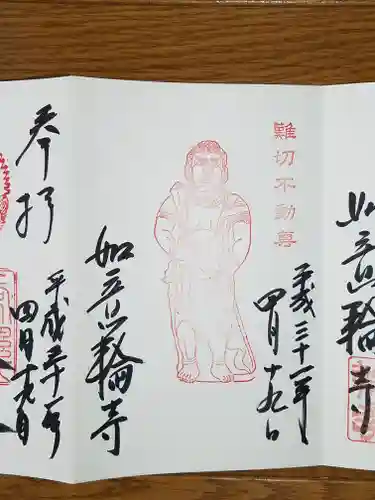 如意輪寺
難切不動尊
平成三十一年
四月十九日
如意輪寺
奉拝
平成三十一年
四月十九日